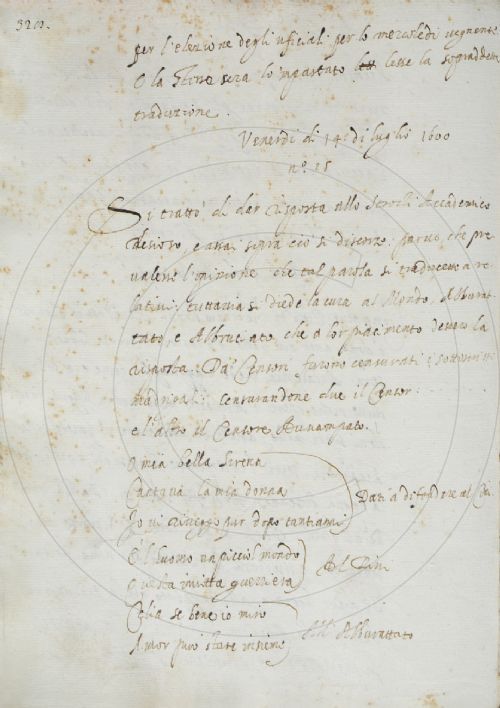 per l'elezione degli uficiali per lo mercoledì vegnente
O la sera lo impastato lesse la sopraddetta
traduzione.
Venerdi di 14 di luglio 1600
n.o 15
Si trattò di dar risposta allo Accademico
e assai sopra ciò si discorse: parve, che pre
valesse l'opinione che tal parola si traducesse a re
tuttavia si diede la cura al Mondo, Abburat
tato, e Abbruciato, che a lor piacimento dessero la
risposta. Da' Censori furono censurati i sottoscritti
Madrigali: censurandone due il Censor
e l'altro il Censore Avvampato.
O mia bella Sirena
la mia donna
Io vi riveggo pur dopo tanti anni
Dati a difendere al
È l'huomo un picciol mondo
Questa invitta guerriera
Al
Celia se bene io miro
Amor può stare insieme
All' Abburattato